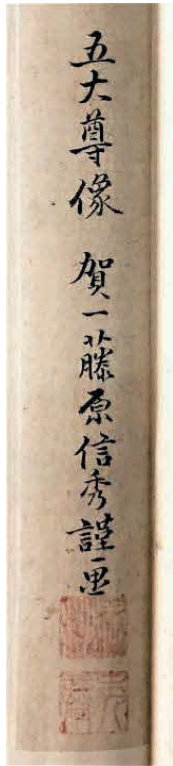 五大尊像　賀一藤原信秀謹畫